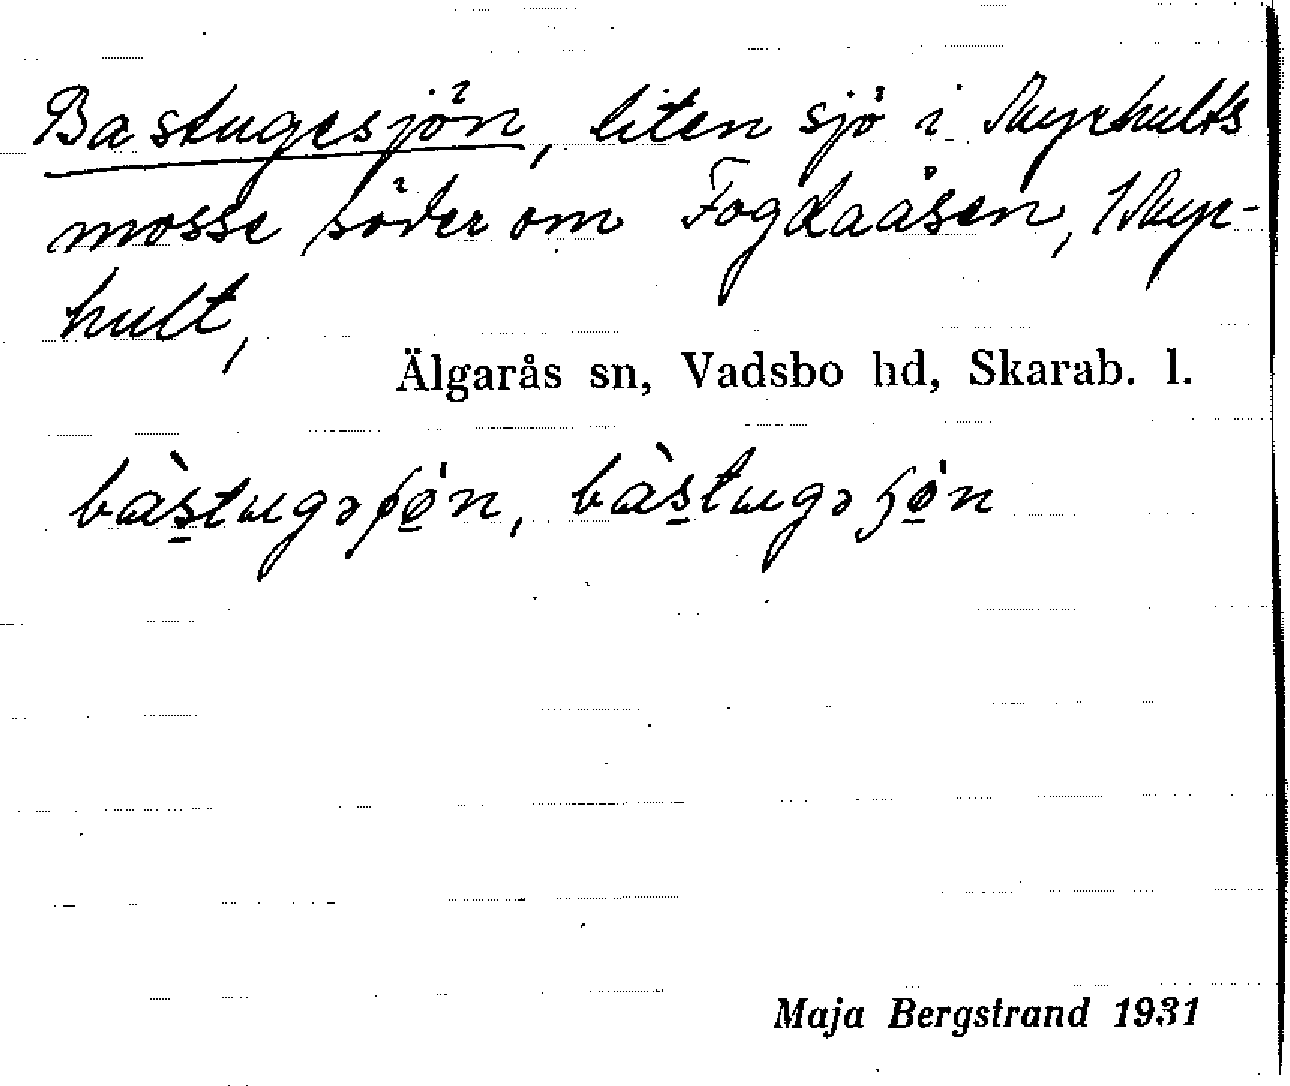 Bastugesjön, liten sjö i Myrhults
mosse söder om Fogdaåsen, 1 Myr-
hult,
Älgarås sn, Vadsbo hd, Skarab. l.
bàstugəʃø̀n, bàstugəʒø̀n
Maja Bergstrand 1931